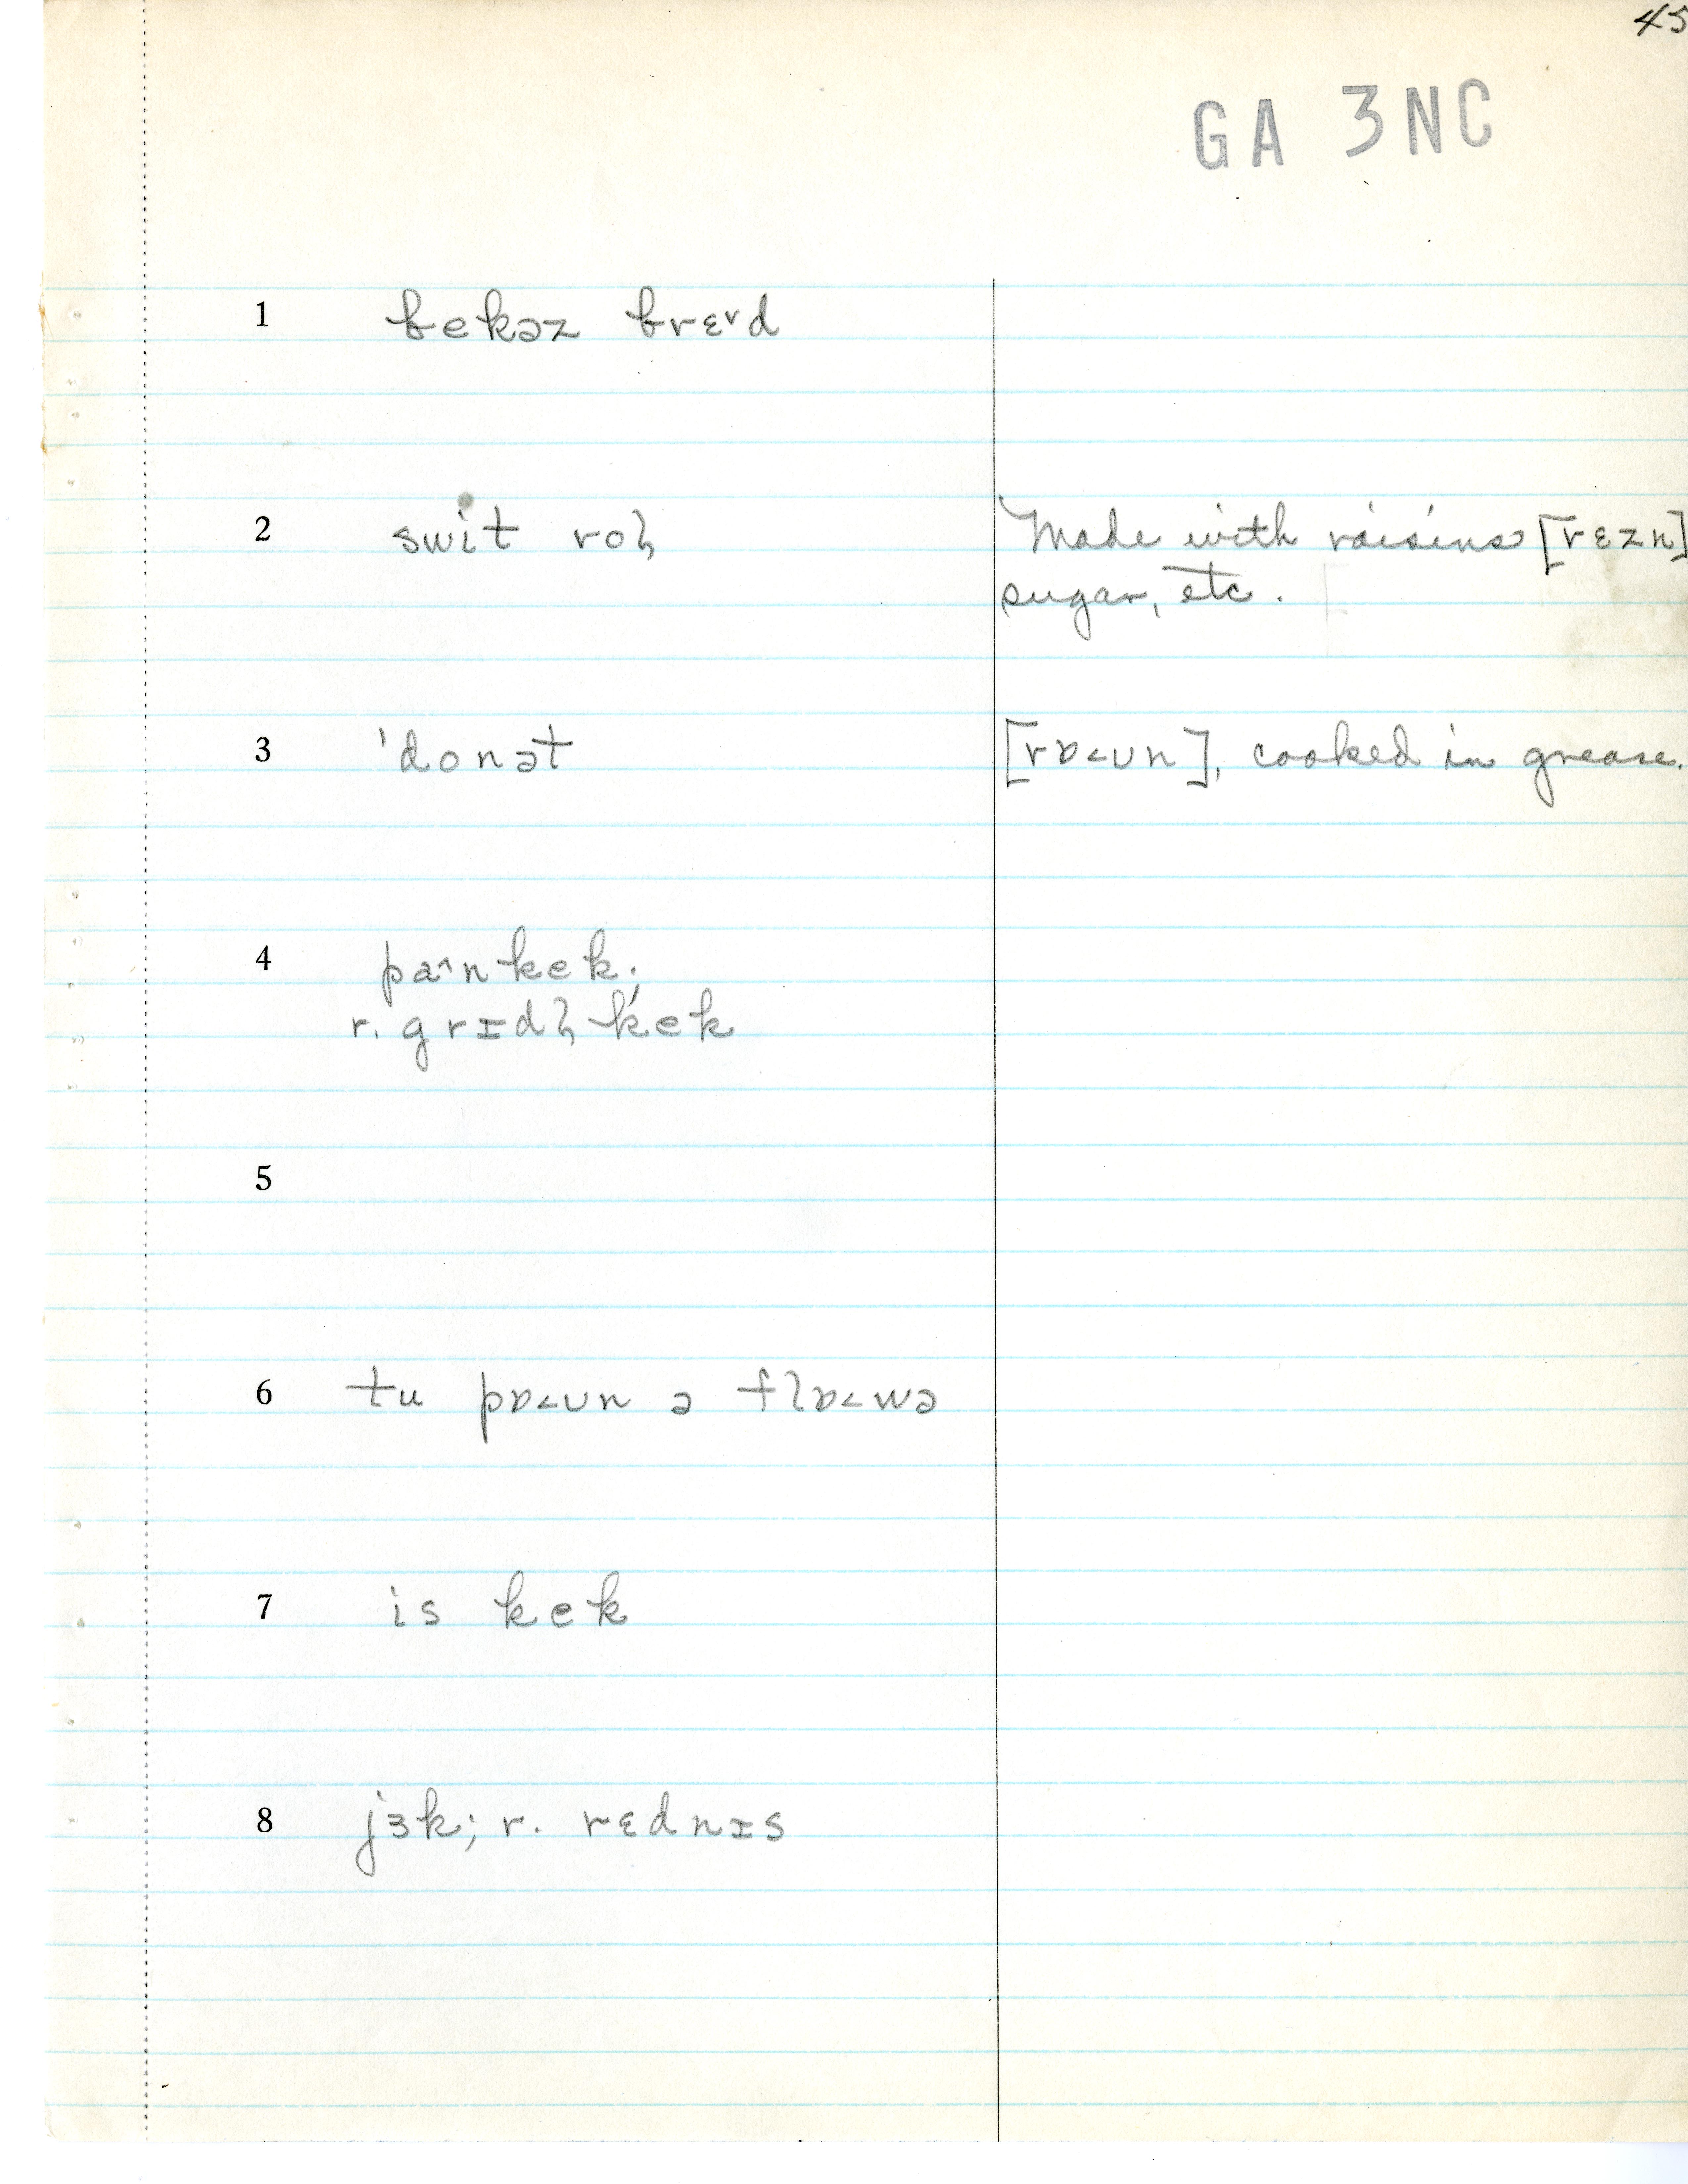 45
GA 3NC
1 bekəz brɛ˅d
2 swit roɫ Made with raisins [rɛzn]
sugar, etc.
3 'donət [rɒ˂ʊn], cooked in grease.
4 pa^nkek;
r. grɪdɫkek
5
6 tu pɒ˂ʊn ə flɒ˂wə
7 is kek
8 jɜk; r. rɛdnɪs